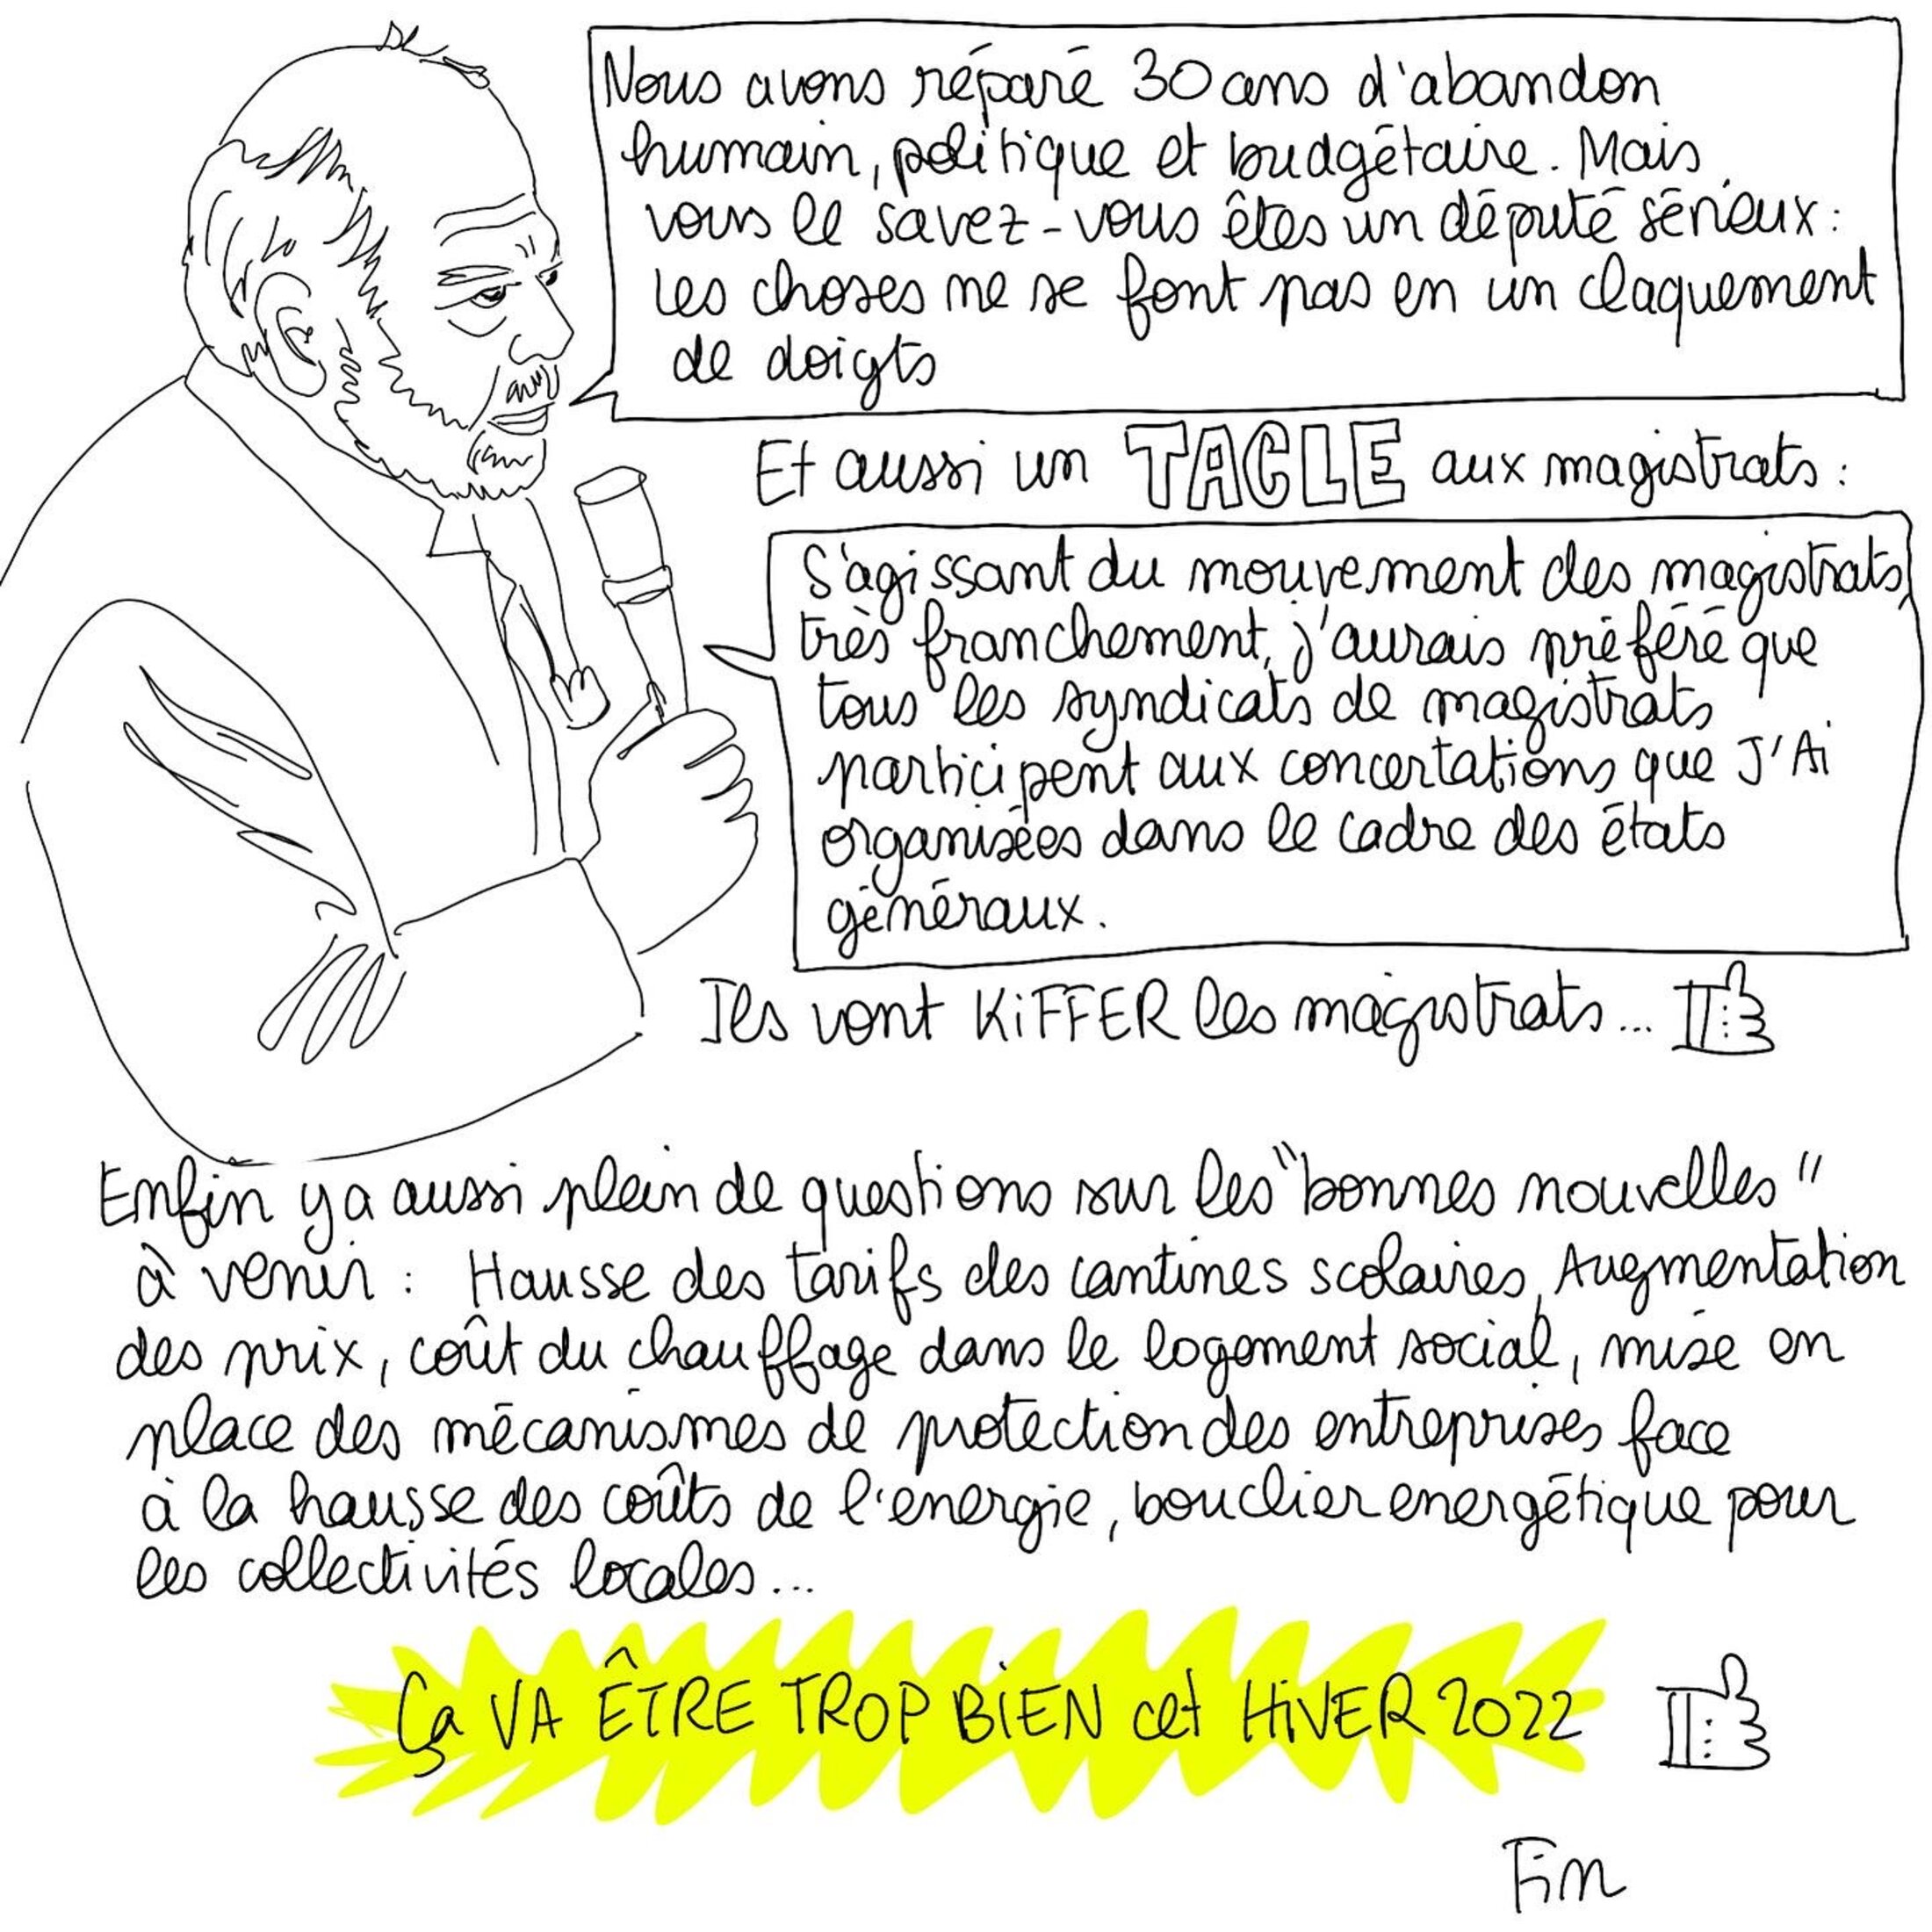 Nous avons réparé 30 ans d'abandon
humain, politique et budgétaire. Mais
vous le savez - vous êtes un député sérieux :
les choses ne se font pas en un claquement
de doigts
Et aussi un TACLE aux magistrats :
S'agissant du mouvement des magistrats,
très franchement, j'aurais préféré que
tous les syndicats de magistrats
participent aux concertations que J'Ai
organisées dans le cadre des états
généraux.
Ils vont KiFFER les magistrats...
Enfin y a aussi plein de questions sur les "bonnes nouvelles"
à venir : Hausse des tarifs des cantines scolaires, Augmentation
des prix, coût du chauffage dans le logement social, mise en
place des mécanismes de protection des entreprises face
à la hausse des coûts de l'énergie, bouclier energétique pour
les collectivités locales...
Ça VA ÊTRE TROP BiEN cet HiVER 2022
Fin